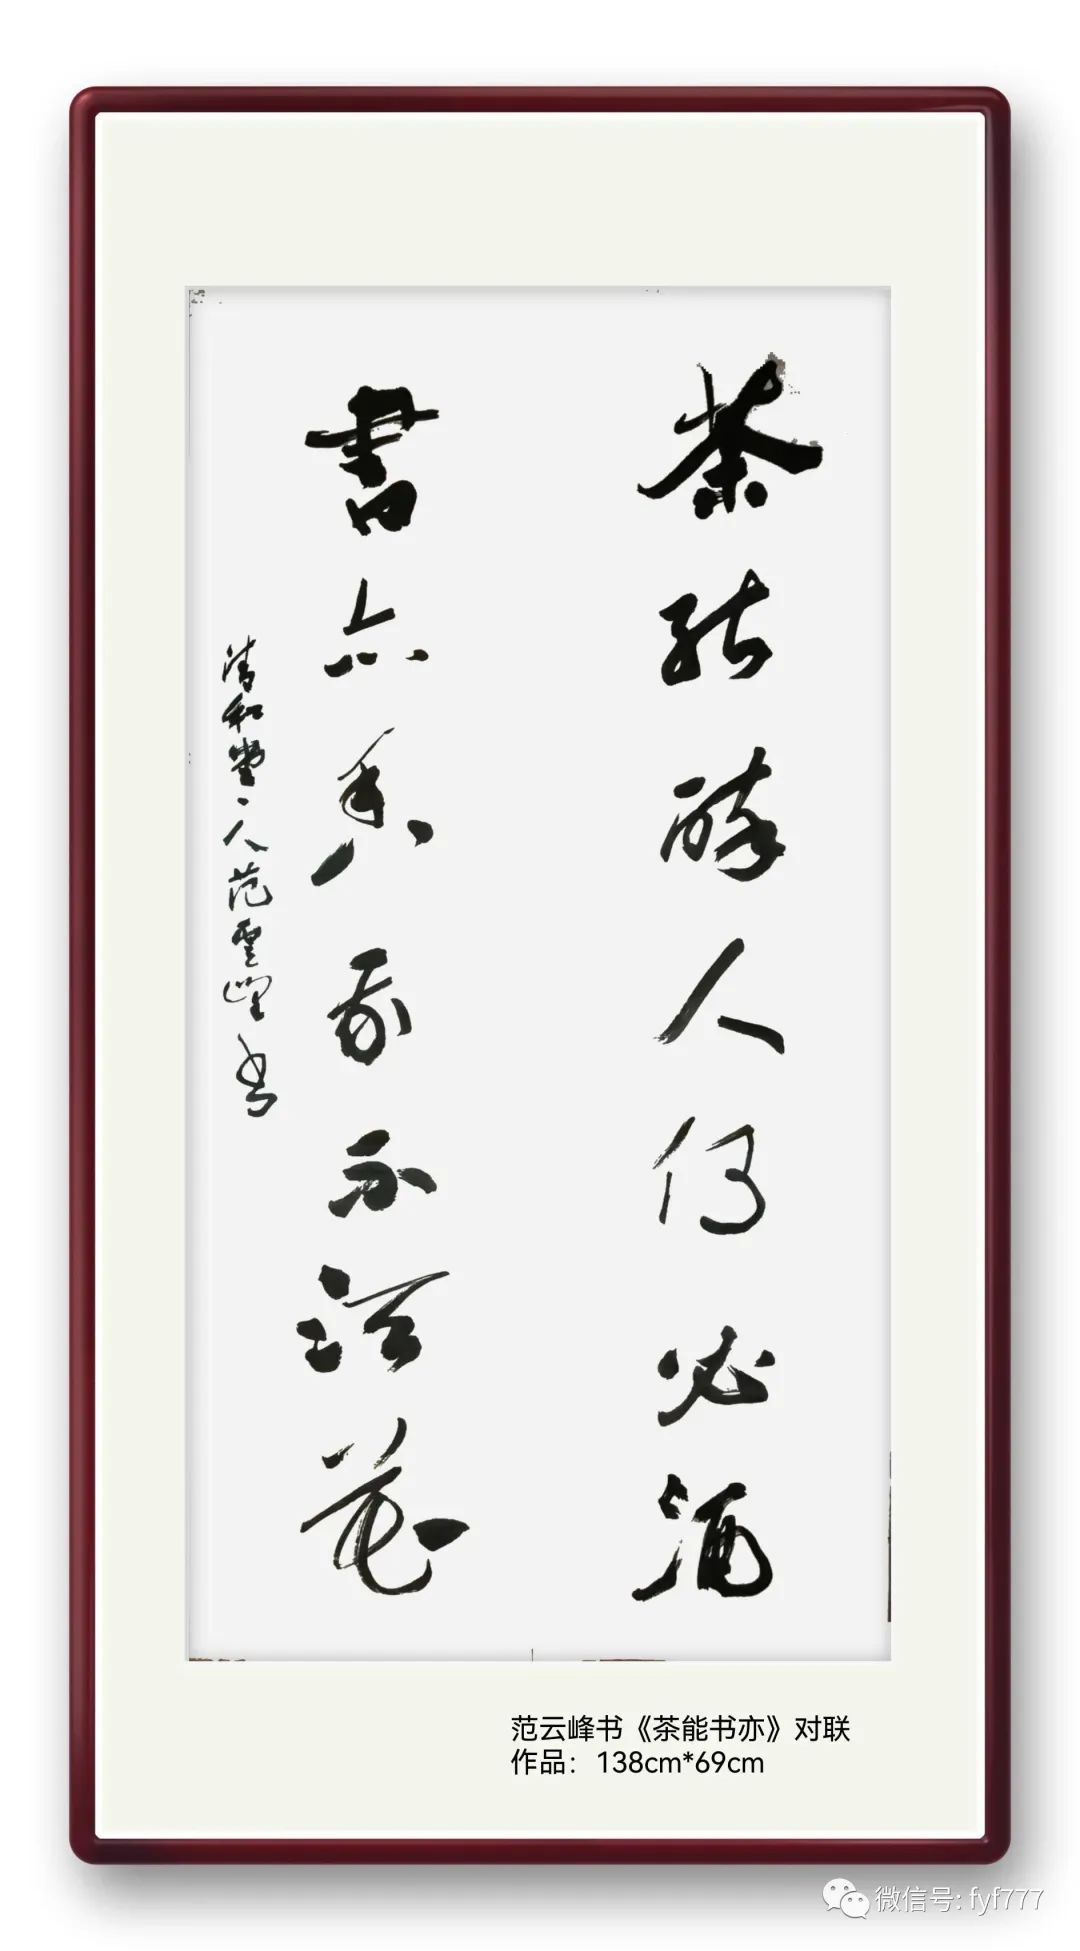 茶能醉人何必酒
書亦香我不須花
清和堂人范雲峰書
范云峰书《茶能书亦》对联
作品：138cm*69cm
微信号: fyf777